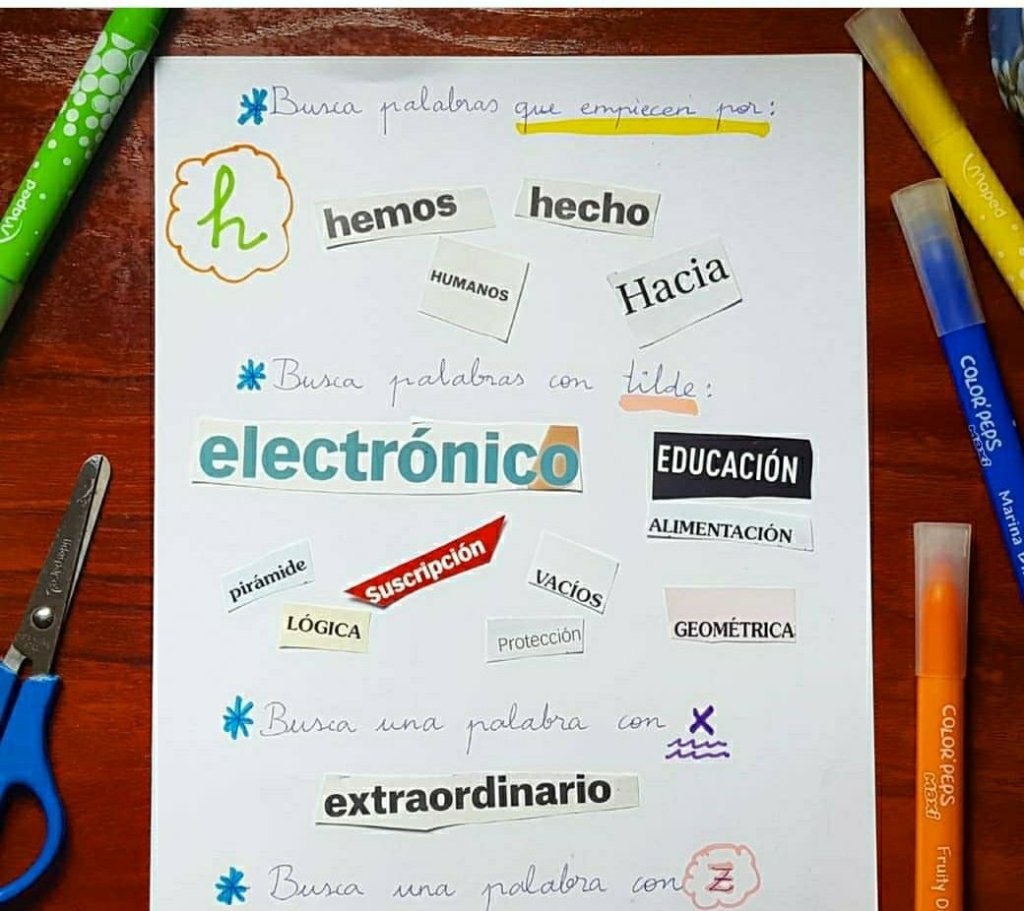 Busca palabras que empiecen por:
h
hemos
hecho
HUMANOS
Hacia
Busca palabras con tilde:
electrónico
EDUCACIÓN
ALIMENTACIÓN
pirámide
Suscripción
VACÍOS
LÓGICA
Protección
GEOMÉTRICA
Busca una palabra con X
extraordinario
Busca una palabra con Z
Maped
Maped
COLOR'PEPS
Marina
COLOR'PEPS
Fruity